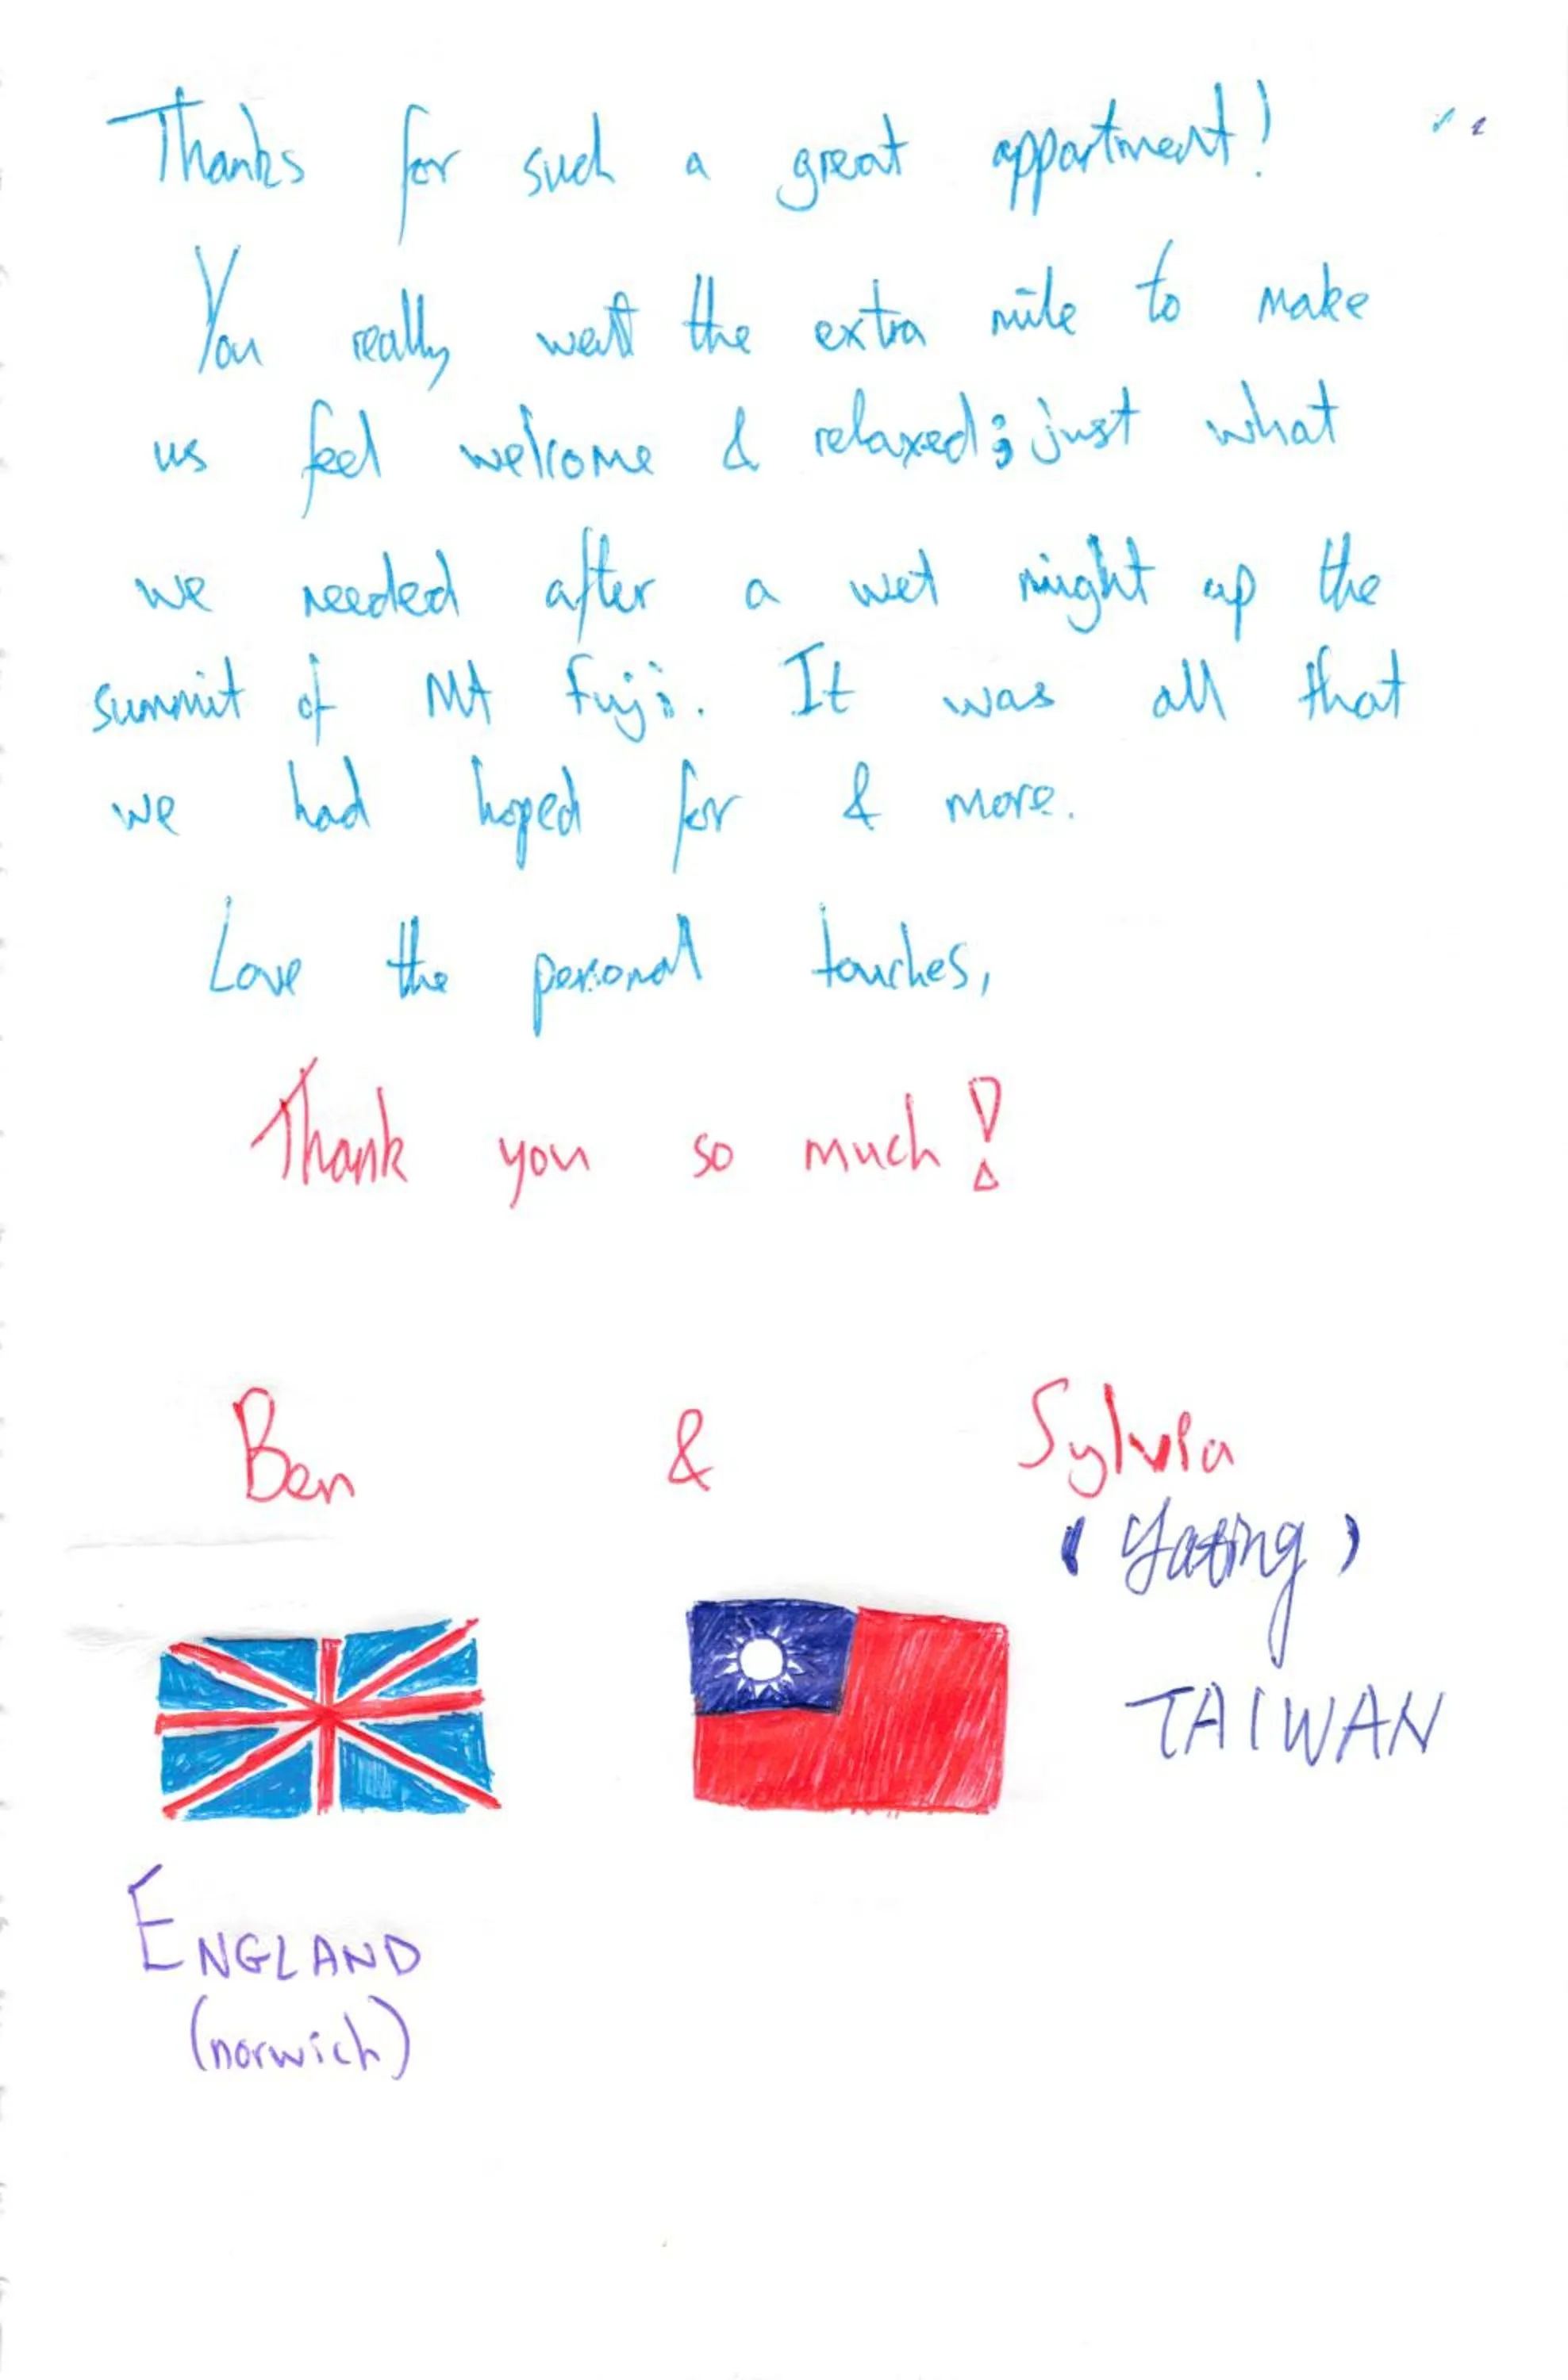 Thanks for such a great appartment!
You really went the extra mile to make
us feel welcome & relaxed; just what
we needed after a wet night up the
summit of Mt Fuji. It was all that
we had hoped for & more.
Love the personal touches,
Thank you so much!
Ben & Sylvia
(Yating)
TAIWAN
ENGLAND
(norwich)